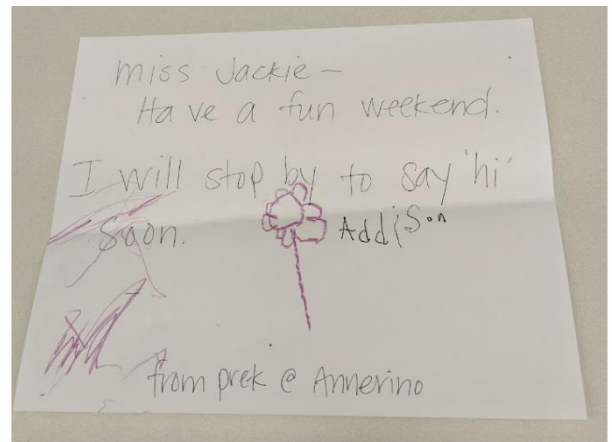 miss Jackie –
Have a fun weekend.
I will stop by to say 'hi'
soon.
Addison
from prek @ Annerino